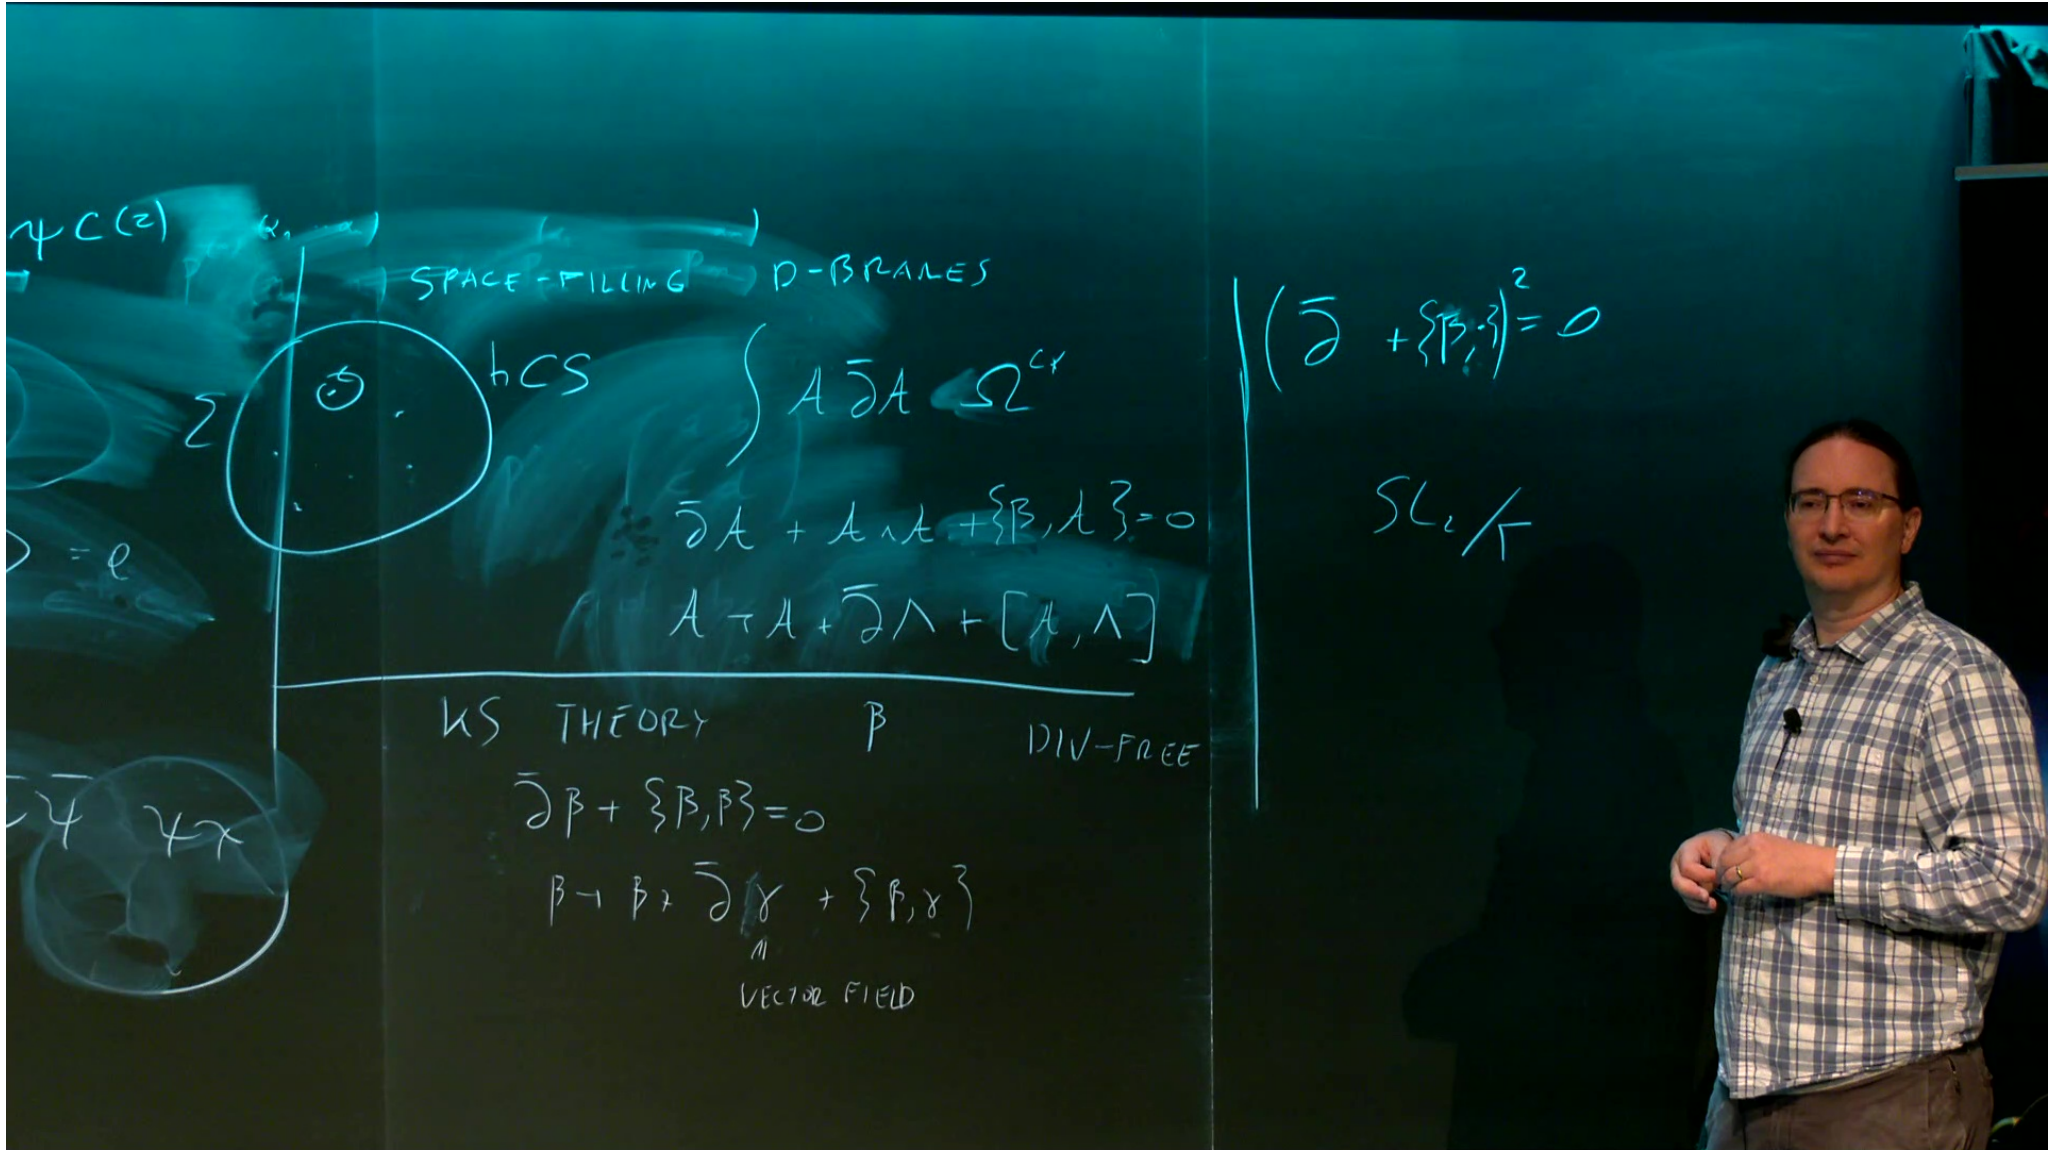 ψ C(z)
SPACE-FILLING D-BRANES
Σ
hCS
∫ A ∂̄A Ω^{CY}
∂̄A + A∧A + {β, A} = 0
A → A + ∂̄Λ + [A, Λ]
= e
KS THEORY β DIV-FREE
∂̄β + {β, β} = 0
β → β + ∂̄γ + {β, γ}
VECTOR FIELD
ψ̄ ψχ
(∂̄ + {β, ·})² = 0
SL₂/Γ